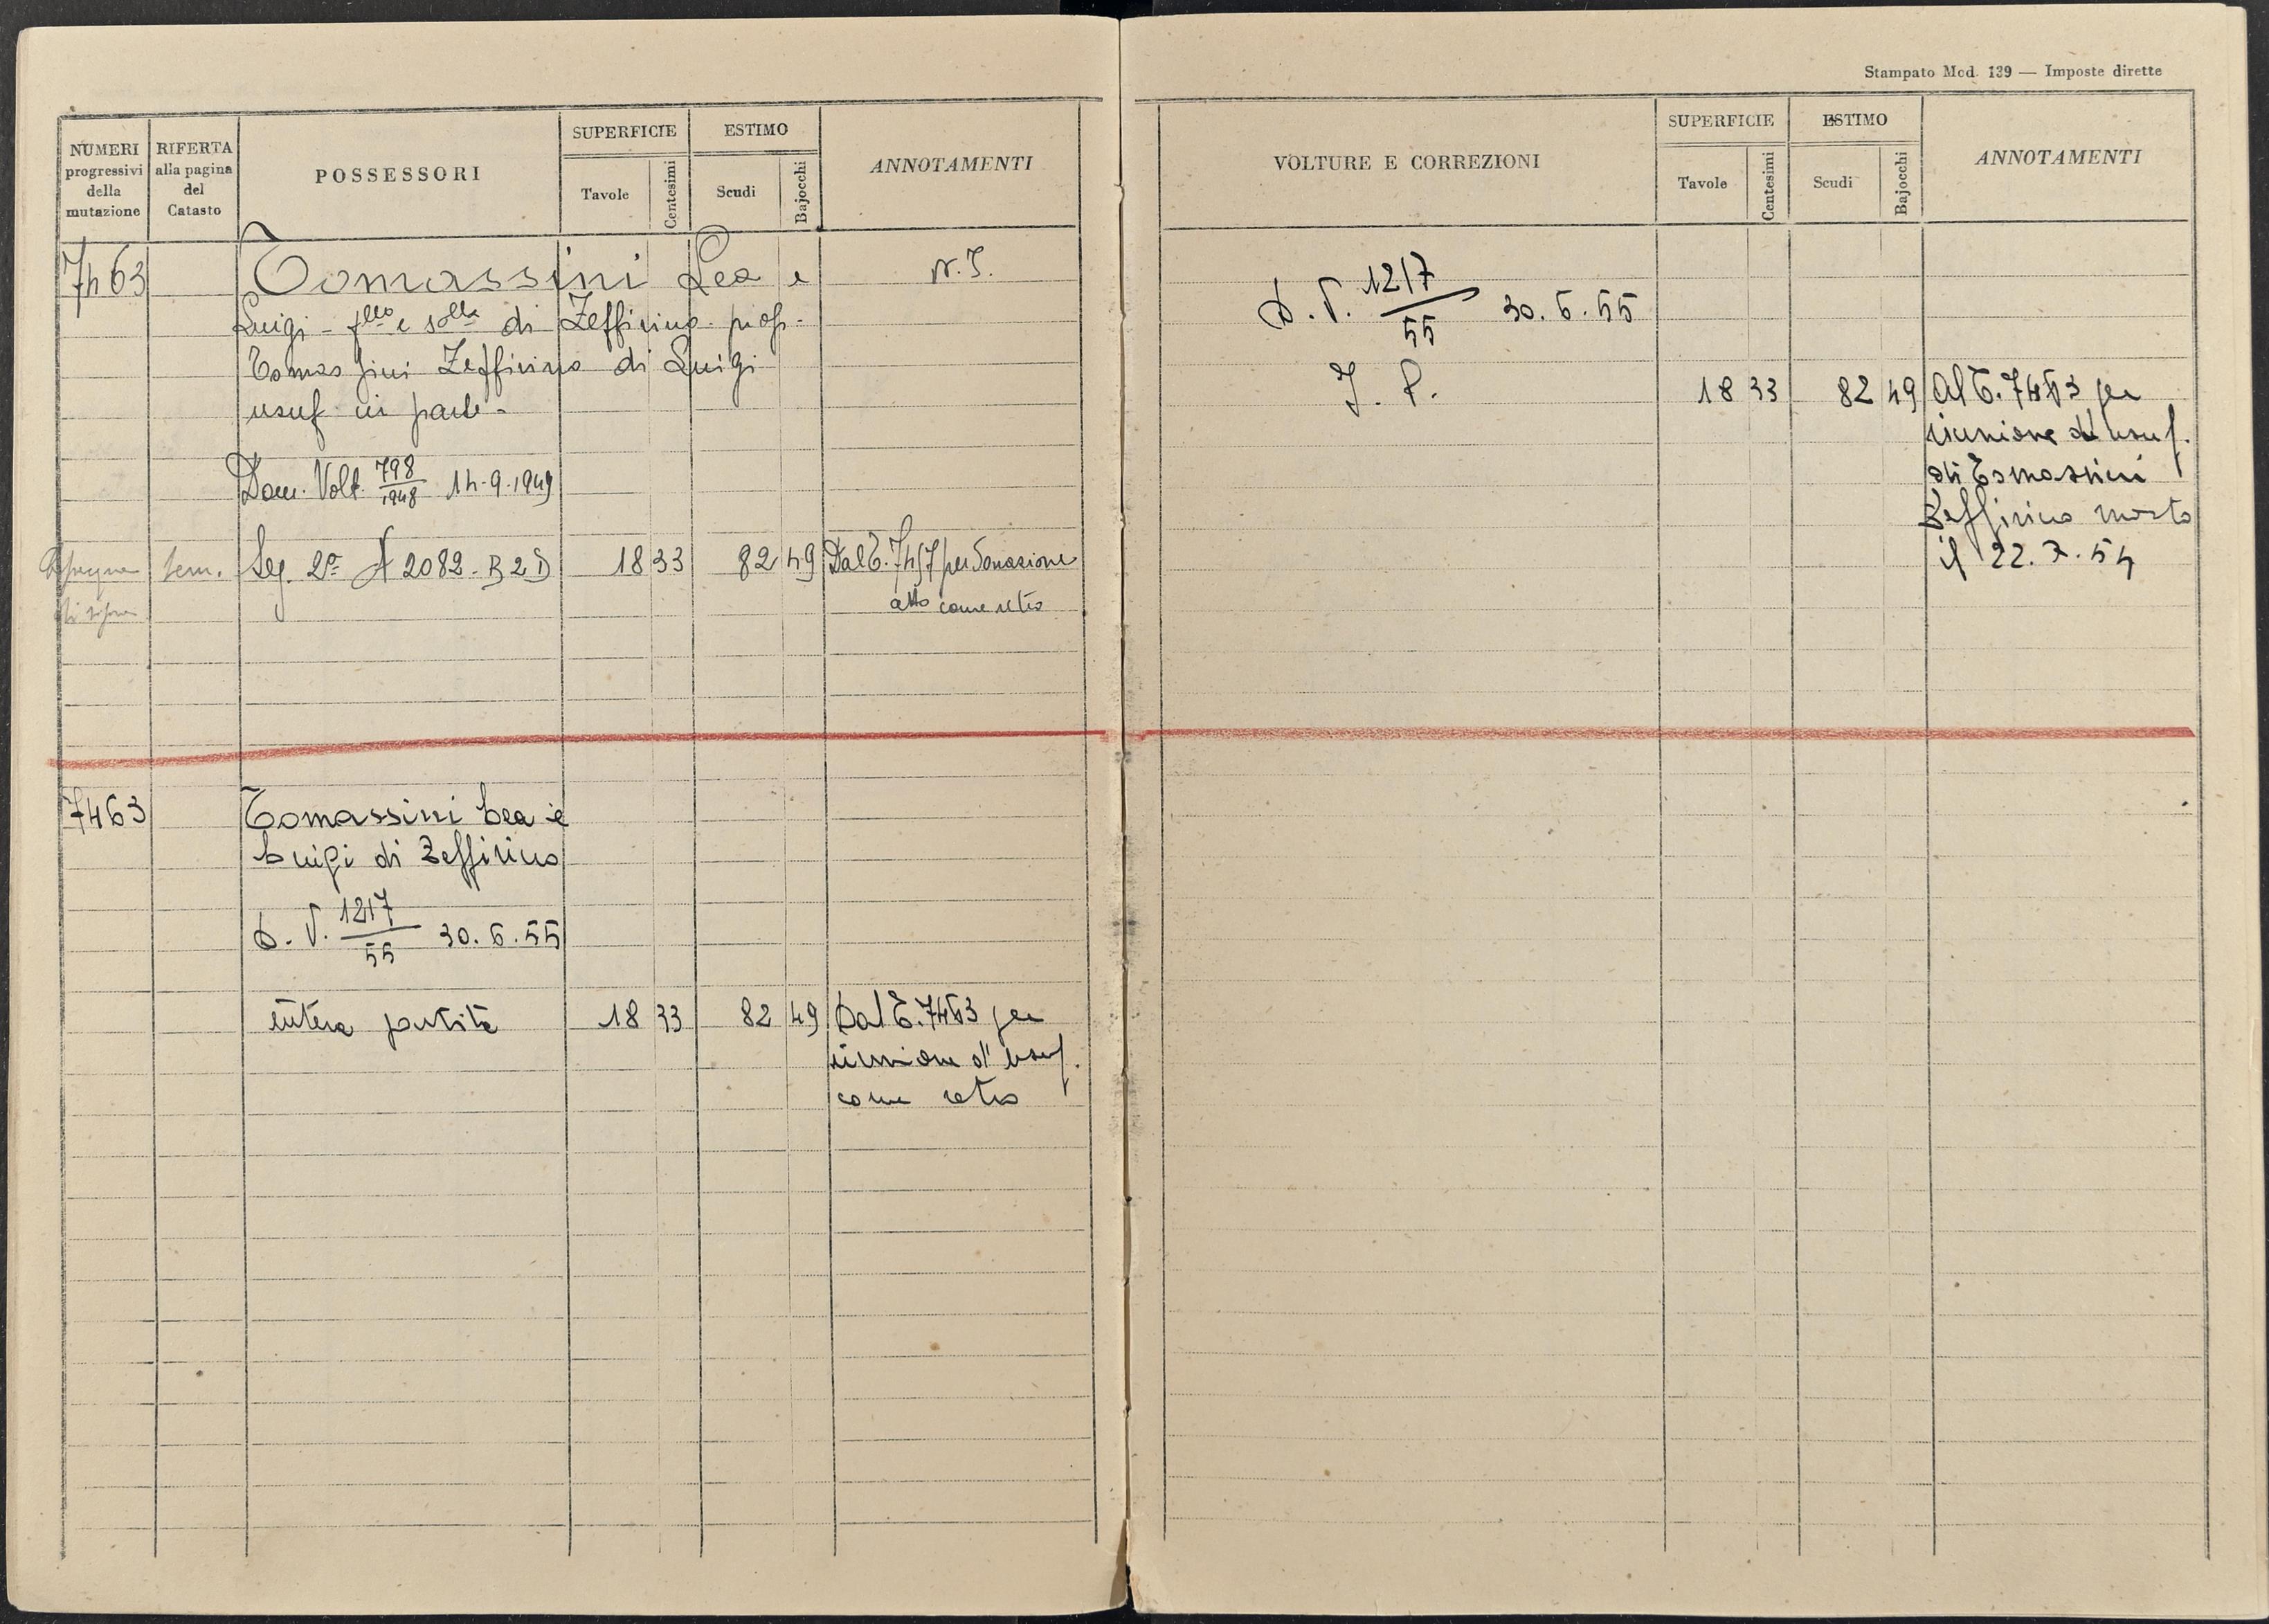 Stampato Mod. 139 — Imposte dirette
NUMERI progressivi della mutazione
RIFERTA alla pagina del Catasto
POSSESSORI
SUPERFICIE
Tavole
Centesimi
ESTIMO
Scudi
Bajocchi
ANNOTAMENTI
7463 Tomassini Lea e N. I.
Luigi - f.llo e s.lla di Zeffirino prop.
Tomassini Zeffirino di Luigi
usuf in parte -
Dom. Volt. 798/1948 14-9-1949
sem. Seg. 2082 18 33 82 49 Dal T. 7457 per Donazione
atto come retro
7463 Tomassini Lea e
Luigi di Zeffirino
D. V. 1217/55 30.6.55
intera partita 18 33 82 49 Dal T. 7463 per
riunione d'usuf.
come retro
VOLTURE E CORREZIONI
SUPERFICIE
Tavole
Centesimi
ESTIMO
Scudi
Bajocchi
ANNOTAMENTI
D. V. 1217/55 30.6.55
I. P. 18 33 82 49 Al T. 7463 per
riunione d'usuf.
di Tomassini
Zeffirino morto
il 22.7.54